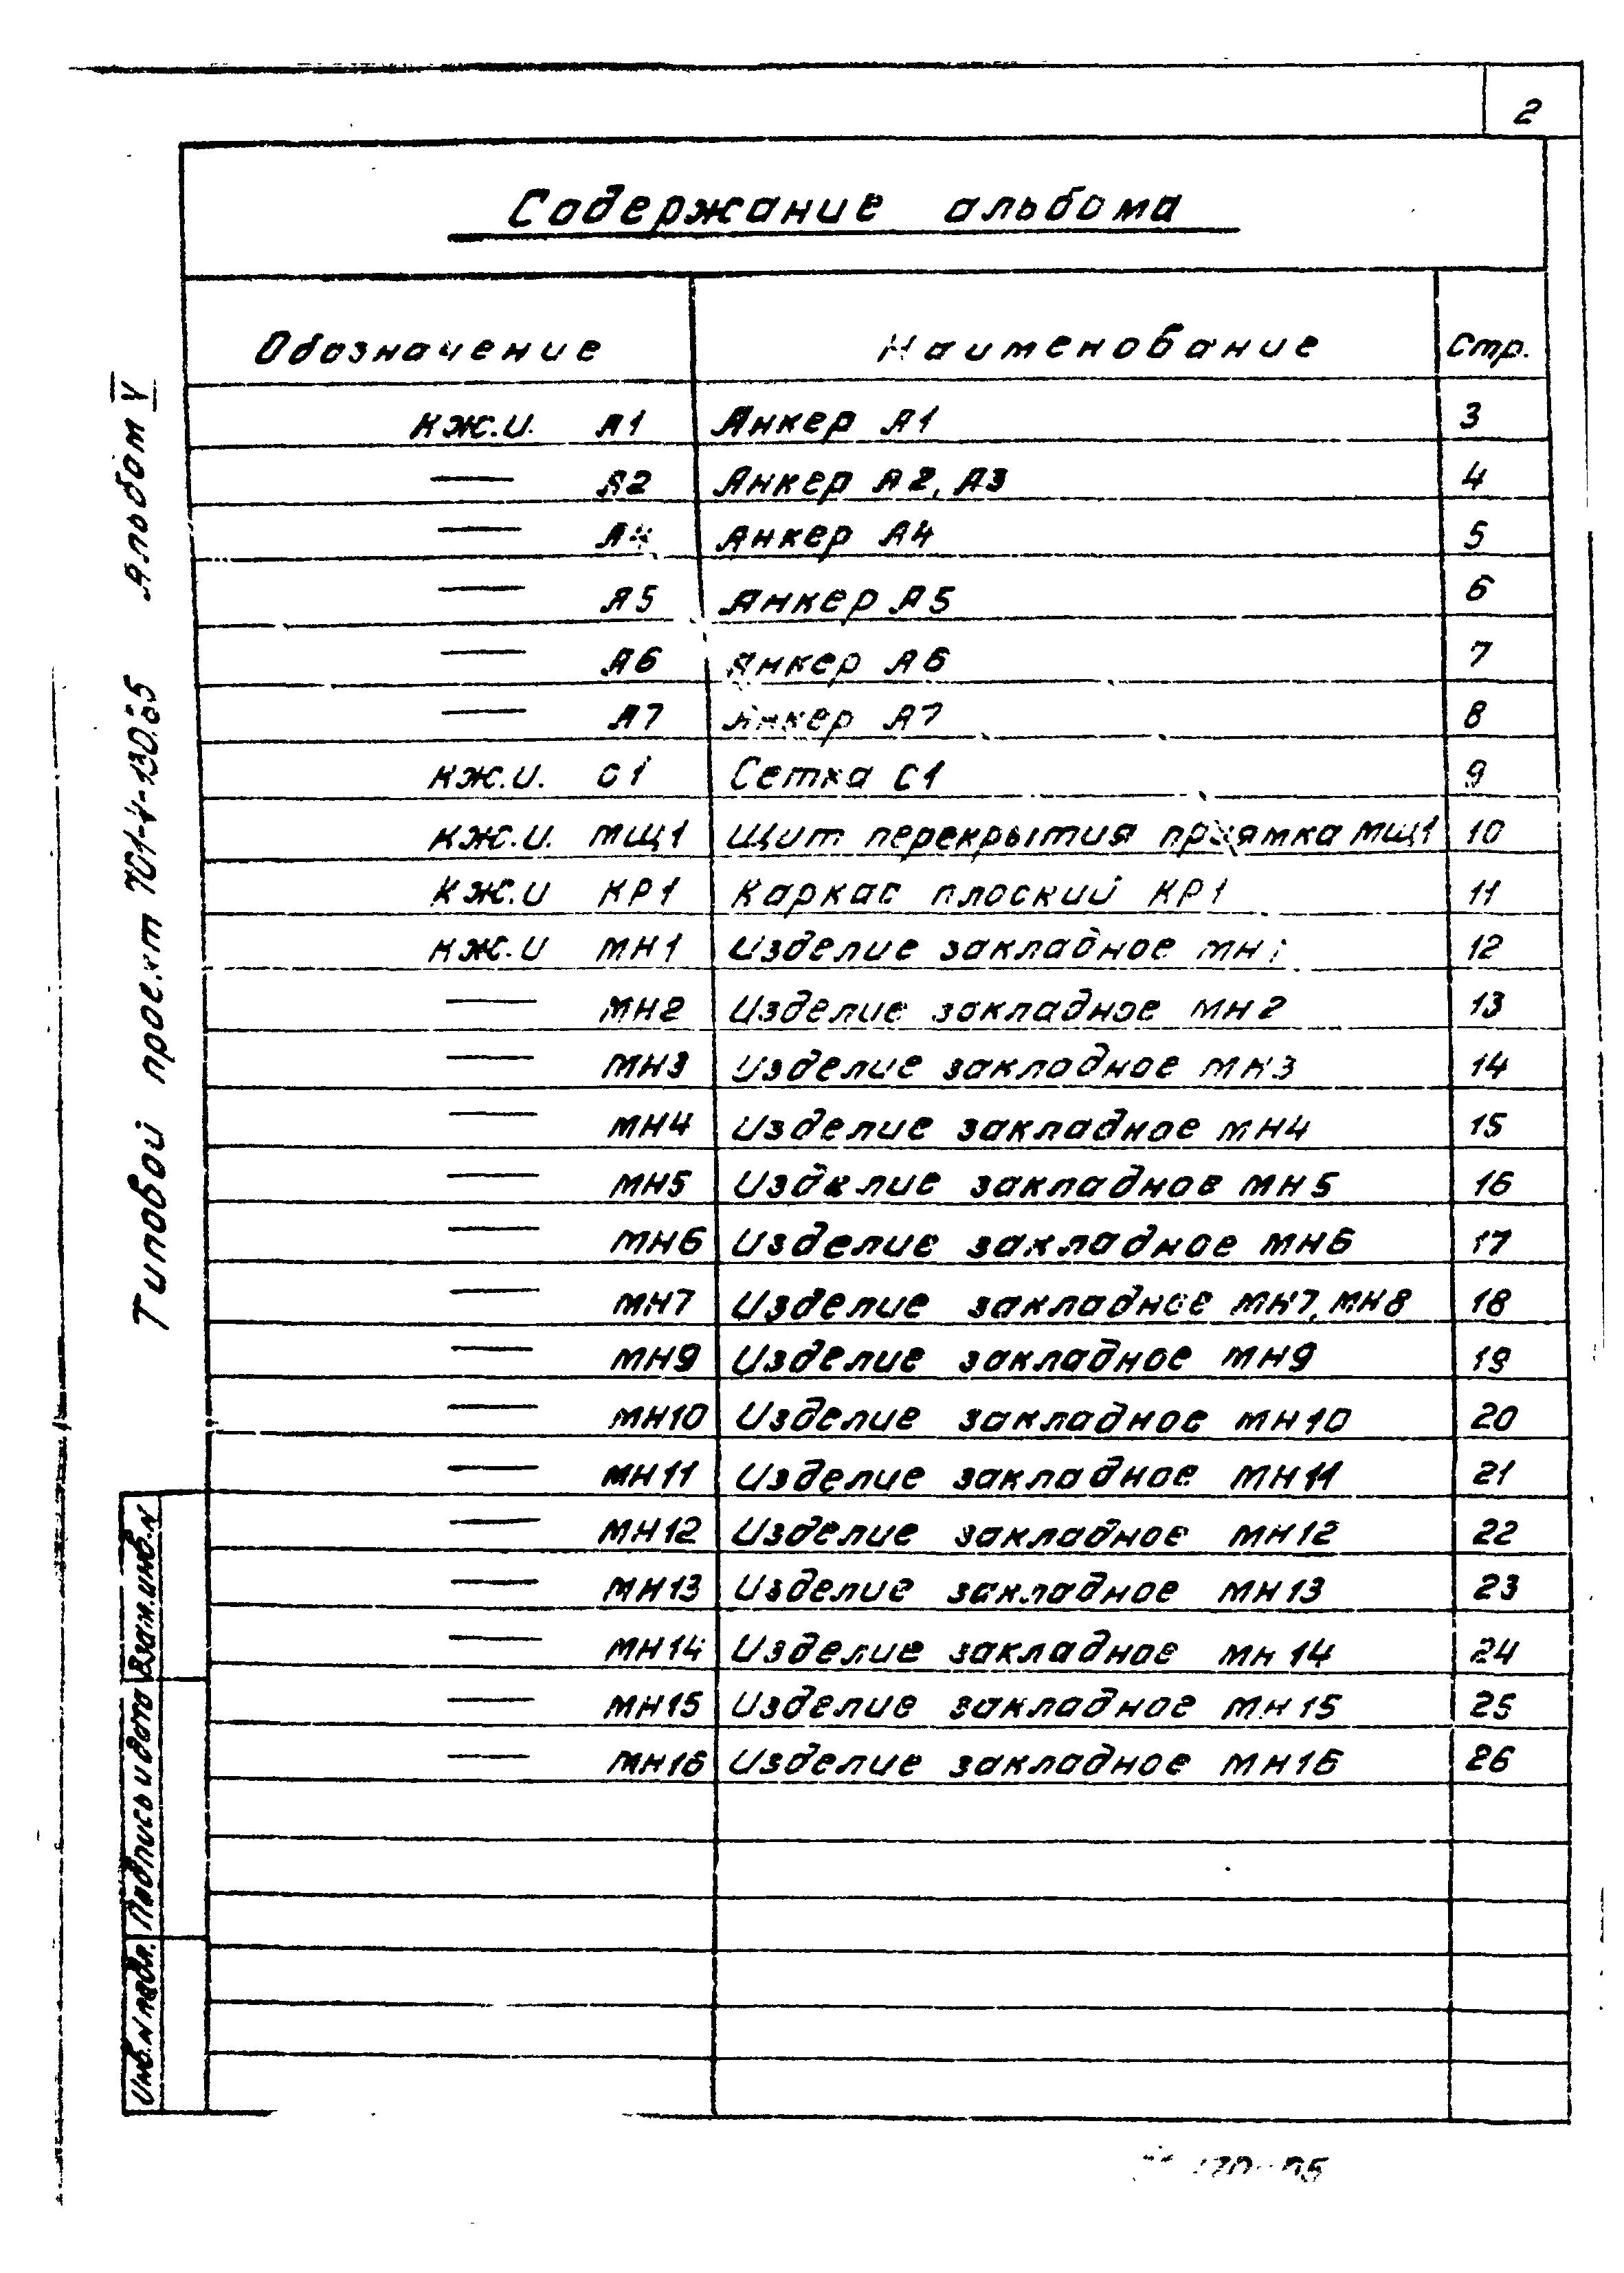 2
Содержание альбома
Обозначение Наименование Стр.
КЖ.И. А1 Анкер А1 3
— А2 Анкер А2, А3 4
— А4 Анкер А4 5
— А5 Анкер А5 6
— А6 Анкер А6 7
— А7 Анкер А7 8
КЖ.И. С1 Сетка С1 9
КЖ.И. МЩ1 Щит перекрытия приямка МЩ1 10
КЖ.И КР1 Каркас плоский КР1 11
КЖ.И МН1 Изделие закладное МН1 12
— МН2 Изделие закладное МН2 13
— МН3 Изделие закладное МН3 14
— МН4 Изделие закладное МН4 15
— МН5 Изделие закладное МН5 16
— МН6 Изделие закладное МН6 17
— МН7 Изделие закладное МН7, МН8 18
— МН9 Изделие закладное МН9 19
— МН10 Изделие закладное МН10 20
— МН11 Изделие закладное МН11 21
— МН12 Изделие закладное МН12 22
— МН13 Изделие закладное МН13 23
— МН14 Изделие закладное МН14 24
— МН15 Изделие закладное МН15 25
— МН16 Изделие закладное МН16 26
Типовой проект Альбом V
Взам.инв.N
Подпись и дата
Инв.N подл.